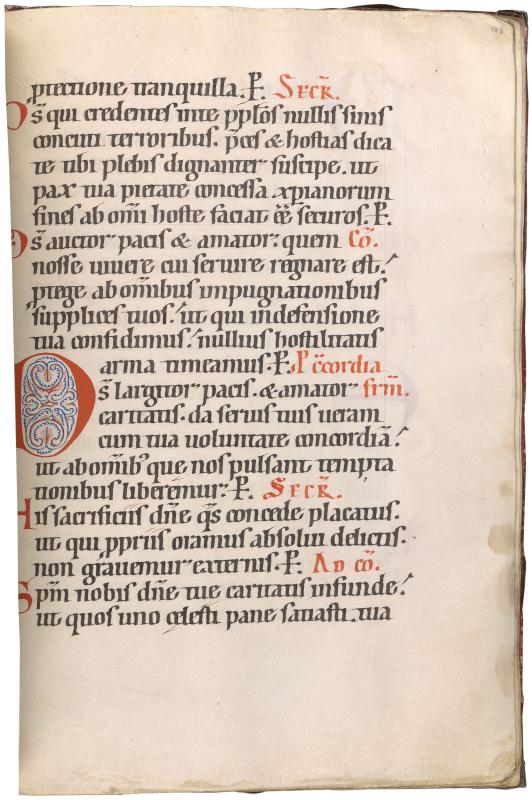 ptectione tranquilla. P. SECR̄.
Ds̄ qui credentes in te pplōs nullis sinis
concuti terroribus. p̄ces & hostias dica
te tibi plebis dignanter suscipe. ut
pax tua pietate concessa xpianorum
fines ab om̄i hoste faciat ēē securos. P.
Ds̄ auctor pacis & amator. quem Cō.
nosse uiuere cui seruire regnare est.
ptege ab omībus impugnationibus
supplices tuos. ut qui in defensione
tua confidimus. nullius hostilitatis
arma timeamus. P. P c̄cordia
Ds̄ largitor pacis. & amator frm̄.
caritatis. da seruis tuis ueram
cum tua uoluntate concordiā.
ut ab omib; que nos pulsant tempta
tionibus liberemur. P. SECR̄.
His sacrificiis dn̄e qs̄ concede placatus.
ut qui ppriis oramus absolui delictis.
non grauemur externis. P. AD cō.
Spm̄ nobis dn̄e tue caritatis infunde.
ut quos uno celesti pane satiasti. tua